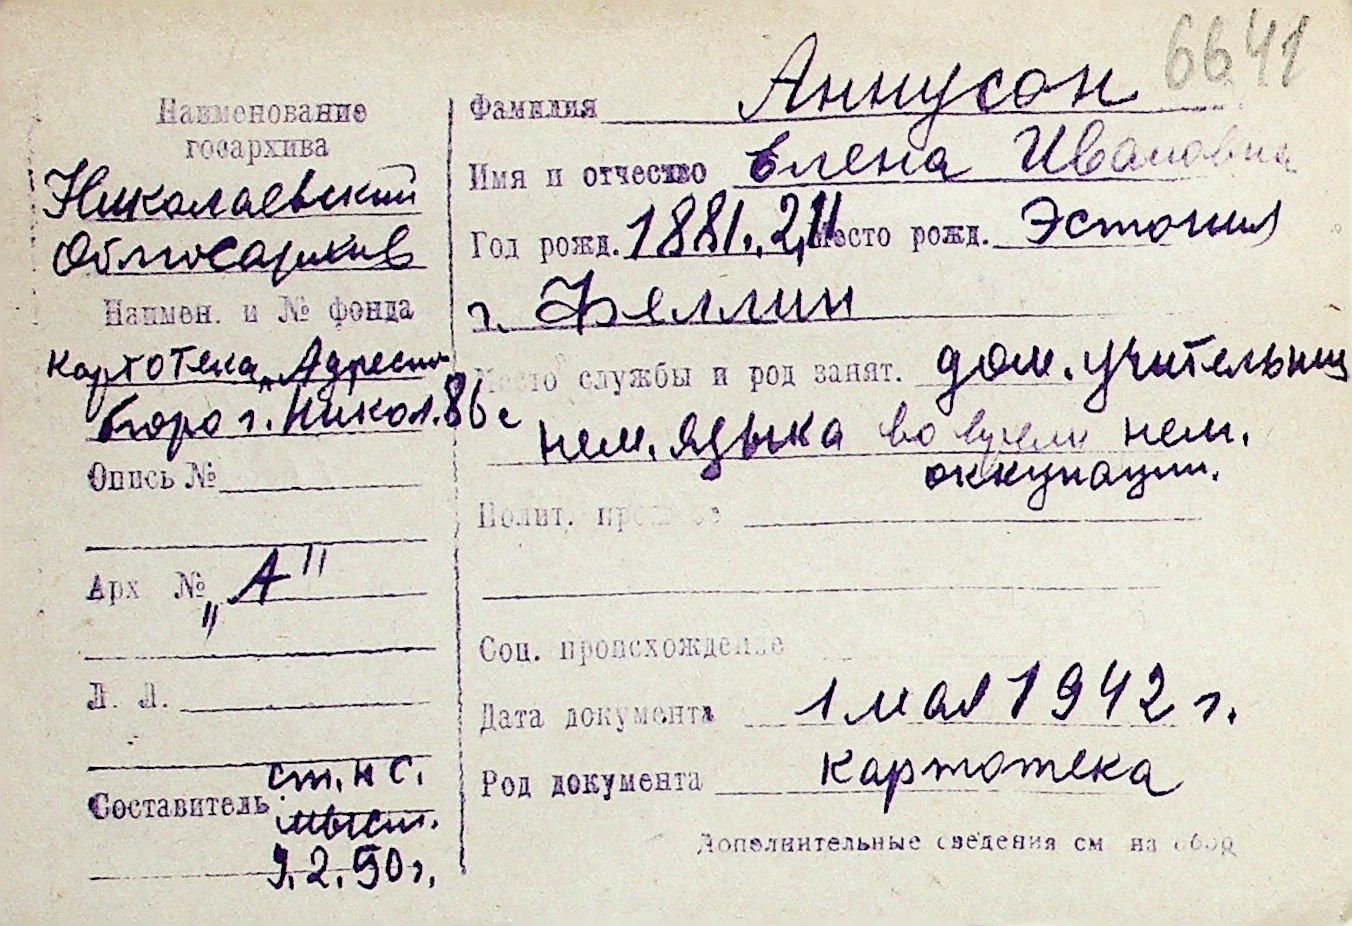 6641
Наименование
госархива
Николаевский
Облгосархив
Наимен. и № фонда
картотека „Адресн
бюро г. Никол. 86 с
Опись №
Арх № „А"
Л. Л.
Составитель ст. н с.
9.2.50 г.
Фамилия Аннусон
Имя и отчество Елена Ивановна
Год рожд. 1881.,2,II Место рожд. Эстония
г. Феллин
Место службы и род занят. дом. учительниц
нем. языка во время нем.
оккупации.
Полит. прошлое
Соц. происхождение
Дата документа 1 мая 1942 г.
Род документа картотека
Дополнительные сведения см на обор